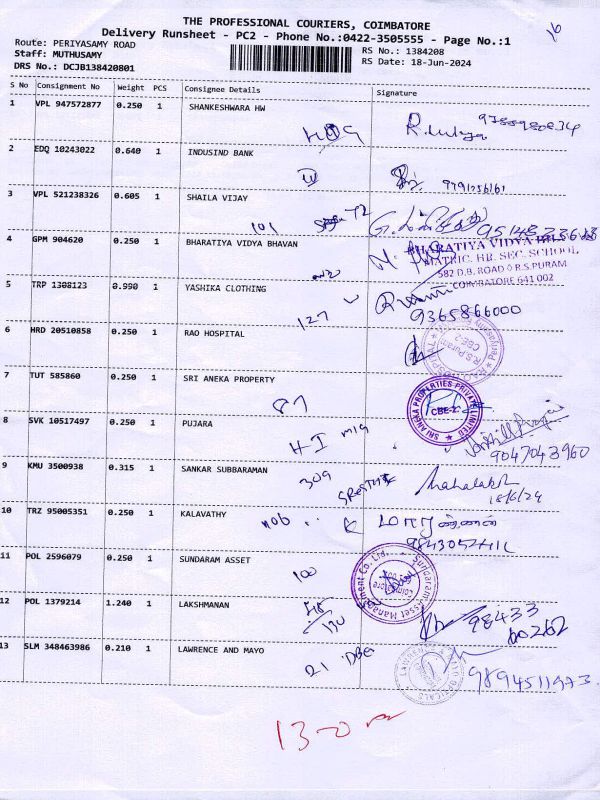 THE PROFESSIONAL COURIERS, COIMBATORE
Delivery Runsheet - PC2 - Phone No.:0422-3505555 - Page No.:1
16
Route: PERIYASAMY ROAD
Staff: MUTHUSAMY
DRS No.: DCJB138420801
RS No.: 1384208
RS Date: 18-Jun-2024
S No Consignment No Weight PCS Consignee Details Signature
1 VPL 947572877 0.250 1 SHANKESHWARA HW
2 EDQ 10243022 0.640 1 INDUSIND BANK
9791256161
3 VPL 521238326 0.605 1 SHAILA VIJAY
101
4 GPM 904620 0.250 1 BHARATIYA VIDYA BHAVAN
BHARATIYA VIDYA
MATRIC. HR. SEC. SCHOOL,
582 D.B. ROAD R.S.PURAM
COIMBATORE 641 002
5 TRP 1308123 0.990 1 YASHIKA CLOTHING
127
9365866000
6 HRD 20510858 0.250 1 RAO HOSPITAL
R.S.Puram
CBE-2
7 TUT 585860 0.250 1 SRI ANEKA PROPERTY
87
SRI ANEKA PROPERTIES PRIVATE LIMITED
CBE-2
8 SVK 10517497 0.250 1 PUJARA
9047043960
9 KMU 3500938 0.315 1 SANKAR SUBBARAMAN
309
Mahalaksh
18/6/24
10 TRZ 95005351 0.250 1 KALAVATHY
11 POL 2596079 0.250 1 SUNDARAM ASSET
100
Sundaram Asset Management Co. Ltd.
Coimbatore
12 POL 1379214 1.240 1 LAKSHMANAN
98433
60262
13 SLM 348463986 0.210 1 LAWRENCE AND MAYO
21
9894511973
13-0